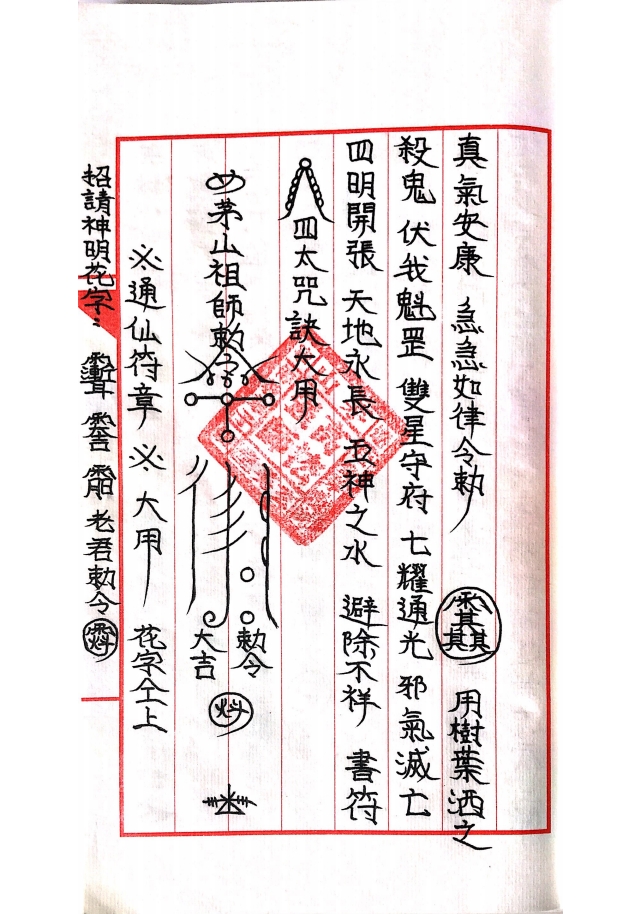 真氣安康 急急如律令勅 用樹葉洒之
殺鬼 伏我魁罡 雙星守府 七耀通光 邪氣滅亡
四明開張 天地永長 五神之水 避除不祥 書符
四太咒訣大用
茅山祖師勅令
勅令
大吉
※通仙符章※ 大用 花字仝上
招請神明花字： 老君勅令